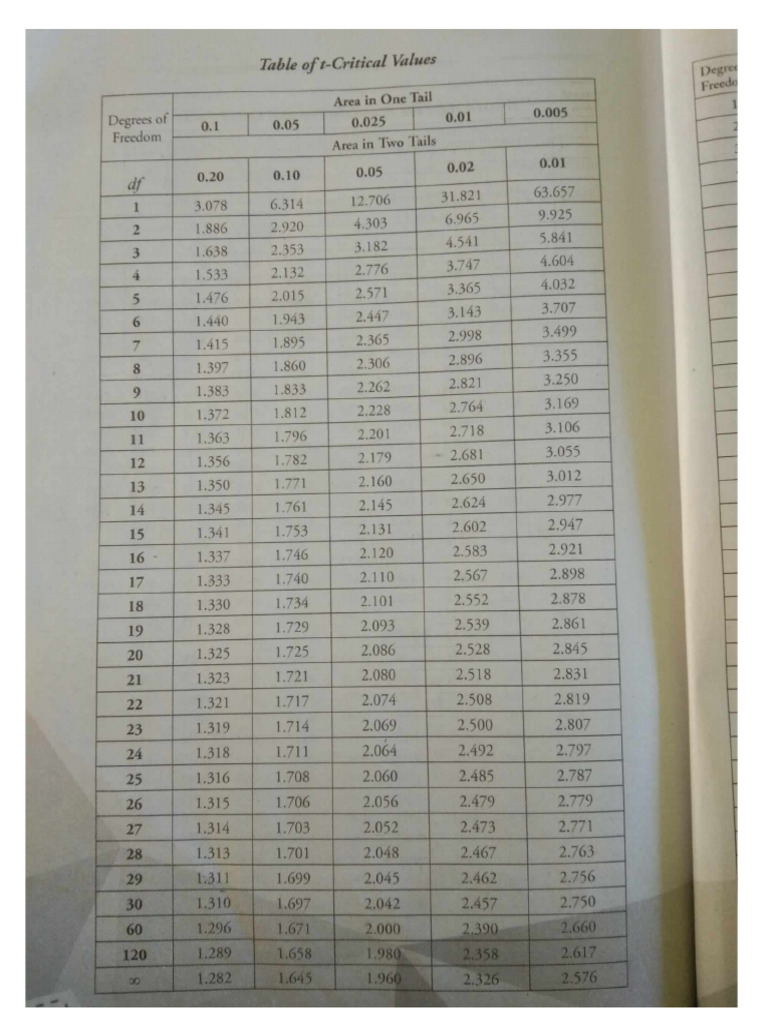 Table of t-Critical Values
Degrees of Freedom Area in One Tail
0.1 0.05 0.025 0.01 0.005
Area in Two Tails
df 0.20 0.10 0.05 0.02 0.01
1 3.078 6.314 12.706 31.821 63.657
2 1.886 2.920 4.303 6.965 9.925
3 1.638 2.353 3.182 4.541 5.841
4 1.533 2.132 2.776 3.747 4.604
5 1.476 2.015 2.571 3.365 4.032
6 1.440 1.943 2.447 3.143 3.707
7 1.415 1.895 2.365 2.998 3.499
8 1.397 1.860 2.306 2.896 3.355
9 1.383 1.833 2.262 2.821 3.250
10 1.372 1.812 2.228 2.764 3.169
11 1.363 1.796 2.201 2.718 3.106
12 1.356 1.782 2.179 2.681 3.055
13 1.350 1.771 2.160 2.650 3.012
14 1.345 1.761 2.145 2.624 2.977
15 1.341 1.753 2.131 2.602 2.947
16 1.337 1.746 2.120 2.583 2.921
17 1.333 1.740 2.110 2.567 2.898
18 1.330 1.734 2.101 2.552 2.878
19 1.328 1.729 2.093 2.539 2.861
20 1.325 1.725 2.086 2.528 2.845
21 1.323 1.721 2.080 2.518 2.831
22 1.321 1.717 2.074 2.508 2.819
23 1.319 1.714 2.069 2.500 2.807
24 1.318 1.711 2.064 2.492 2.797
25 1.316 1.708 2.060 2.485 2.787
26 1.315 1.706 2.056 2.479 2.779
27 1.314 1.703 2.052 2.473 2.771
28 1.313 1.701 2.048 2.467 2.763
29 1.311 1.699 2.045 2.462 2.756
30 1.310 1.697 2.042 2.457 2.750
60 1.296 1.671 2.000 2.390 2.660
120 1.289 1.658 1.980 2.358 2.617
∞ 1.282 1.645 1.960 2.326 2.576